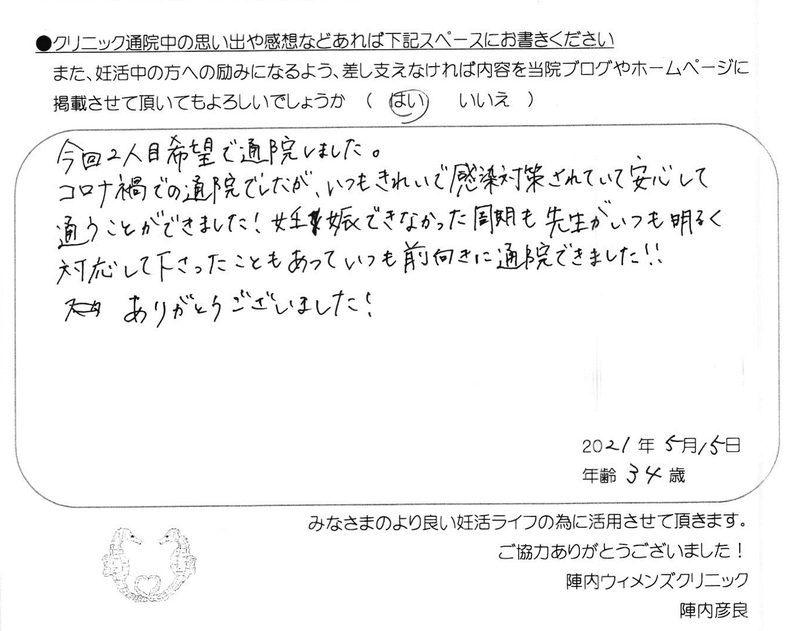 ●クリニック通院中の思い出や感想などあれば下記スペースにお書きください
また、妊活中の方への励みになるよう、差し支えなければ内容を当院ブログやホームページに
掲載させて頂いてもよろしいでしょうか （ はい いいえ ）
今回2人目希望で通院しました。
コロナ禍での通院でしたが、いつもきれいで感染対策されていて安心して
通うことができました！妊娠できなかった周期も先生がいつも明るく
対応して下さったこともあっていつも前向きに通院できました!!
ありがとうございました！
2021年5月15日
年齢 34 歳
みなさまのより良い妊活ライフの為に活用させて頂きます。
ご協力ありがとうございました！
陣内ウィメンズクリニック
陣内彦良